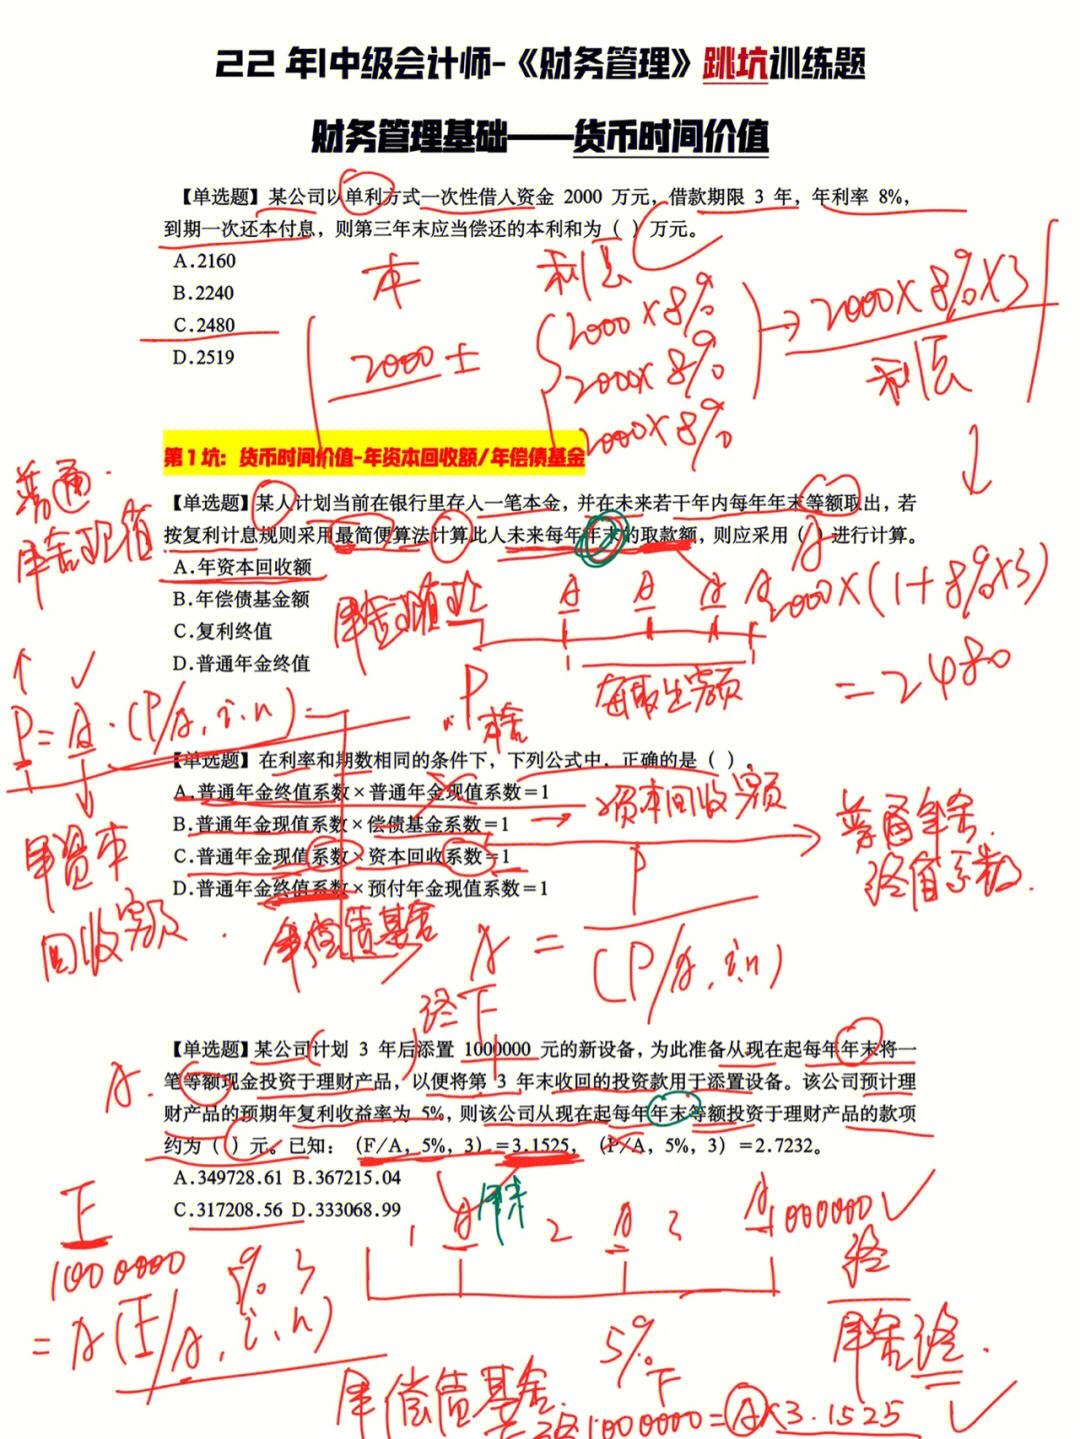 22 年|中级会计师-《财务管理》跳坑训练题
财务管理基础——货币时间价值
【单选题】某公司以单利方式一次性借入资金 2000 万元，借款期限 3 年，年利率 8%，
到期一次还本付息，则第三年末应当偿还的本利和为（ ）万元。
A.2160
B.2240
C.2480
D.2519
本 利息
2000+
2000×8%
2000×8%
2000×8%
→2000×8%×3
利息
第 1 坑：货币时间价值-年资本回收额/年偿债基金
【单选题】某人计划当前在银行里存入一笔本金，并在未来若干年内每年年末等额取出，若
按复利计息规则采用最简便算法计算此人未来每年年末的取款额，则应采用（ ）进行计算。
A.年资本回收额
B.年偿债基金额
C.复利终值
D.普通年金终值
普通
年金现值
年金现值
A A A A
2000×(1+8%×3)
=2480
P
P=A·(P/A,i,n)
年资本
回收额
【单选题】在利率和期数相同的条件下，下列公式中，正确的是（ ）。
A.普通年金终值系数×普通年金现值系数=1
B.普通年金现值系数×偿债基金系数=1
C.普通年金现值系数×资本回收系数=1
D.普通年金终值系数×预付年金现值系数=1
→资本回收额
普通年金
终值系数
年偿债基金
A=
P
(P/A,i,n)
终 F
【单选题】某公司计划 3 年后添置 1000000 元的新设备，为此准备从现在起每年年末将一
笔等额现金投资于理财产品，以便将第 3 年末收回的投资款用于添置设备。该公司预计理
财产品的预期年复利收益率为 5%，则该公司从现在起每年年末等额投资于理财产品的款项
约为（ ）元。已知：（F/A，5%，3）=3.1525，（P/A，5%，3）=2.7232。
A.349728.61 B.367215.04
C.317208.56 D.333068.99
A.
F
1000000
5% 3
=A(F/A,i,n)
1 A 年末 2 A 3 A 1000000
终
年金终
5%
F
年偿债基金
1000000=A×3.1525